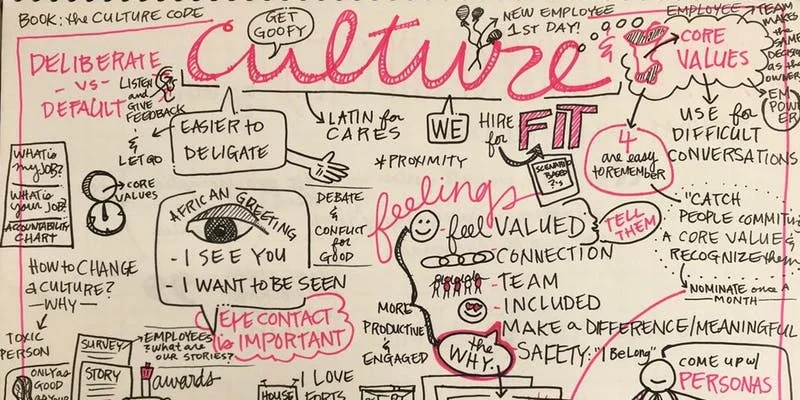 BOOK: the CULTURE CODE
GET
GOOFY
culture
NEW EMPLOYEE
1ST DAY!
&
EMPLOYEE → TEAM
MAKES
the
SAME
DECISIONS
as the
OWNERS
EM
POW
ER
CORE
VALUES
DELIBERATE
- VS -
DEFAULT
LISTEN
and
GIVE
FEEDBACK
&
LET GO
EASIER to
DELIGATE
LATIN for
CARES
WE
HIRE
for
FIT
SCENARIO
BASED
?'s
*PROXIMITY
4
are easy
to REMEMBER
USE for
DIFFICULT
CONVERSATIONS
"CATCH
PEOPLE COMMITING
A CORE VALUE &
RECOGNIZE them
NOMINATE once a
MONTH
WHAT is
my JOB?
WHAT is
your JOB?
ACCOUNTABILITY
CHART
CORE
VALUES
AFRICAN GREETING
- I SEE YOU
- I WANT to BE SEEN
EYE CONTACT
is IMPORTANT
DEBATE
&
CONFLICT
for
GOOD
feelings
feel VALUED
TELL
THEM
CONNECTION
- TEAM
- INCLUDED
MAKE a DIFFERENCE/MEANINGFUL
SAFETY: "I BeLong"
MORE
PRODUCTIVE
&
ENGAGED
the
WHY
HOW to CHANGE
a CULTURE?
- WHY -
TOXIC
PERSON
ONLY as
GOOD
SURVEY
STORY
EMPLOYEES
? what are
our STORIES?
awards
HOUSE
I LOVE
COME UP w/
PERSONAS